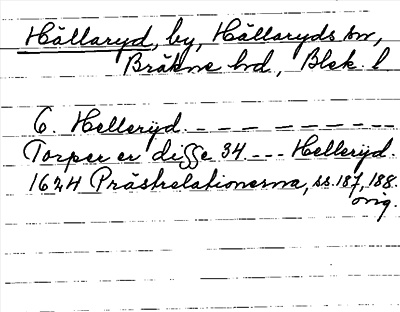 Hällaryd, by, Hällaryds sn,
Bräkne hd, Blek. l
6. Helleryd. — — — — — — — —
Torper er disse 34 --- Helleryd.
1624 Prästrelationerna, ss. 187, 188.
orig.